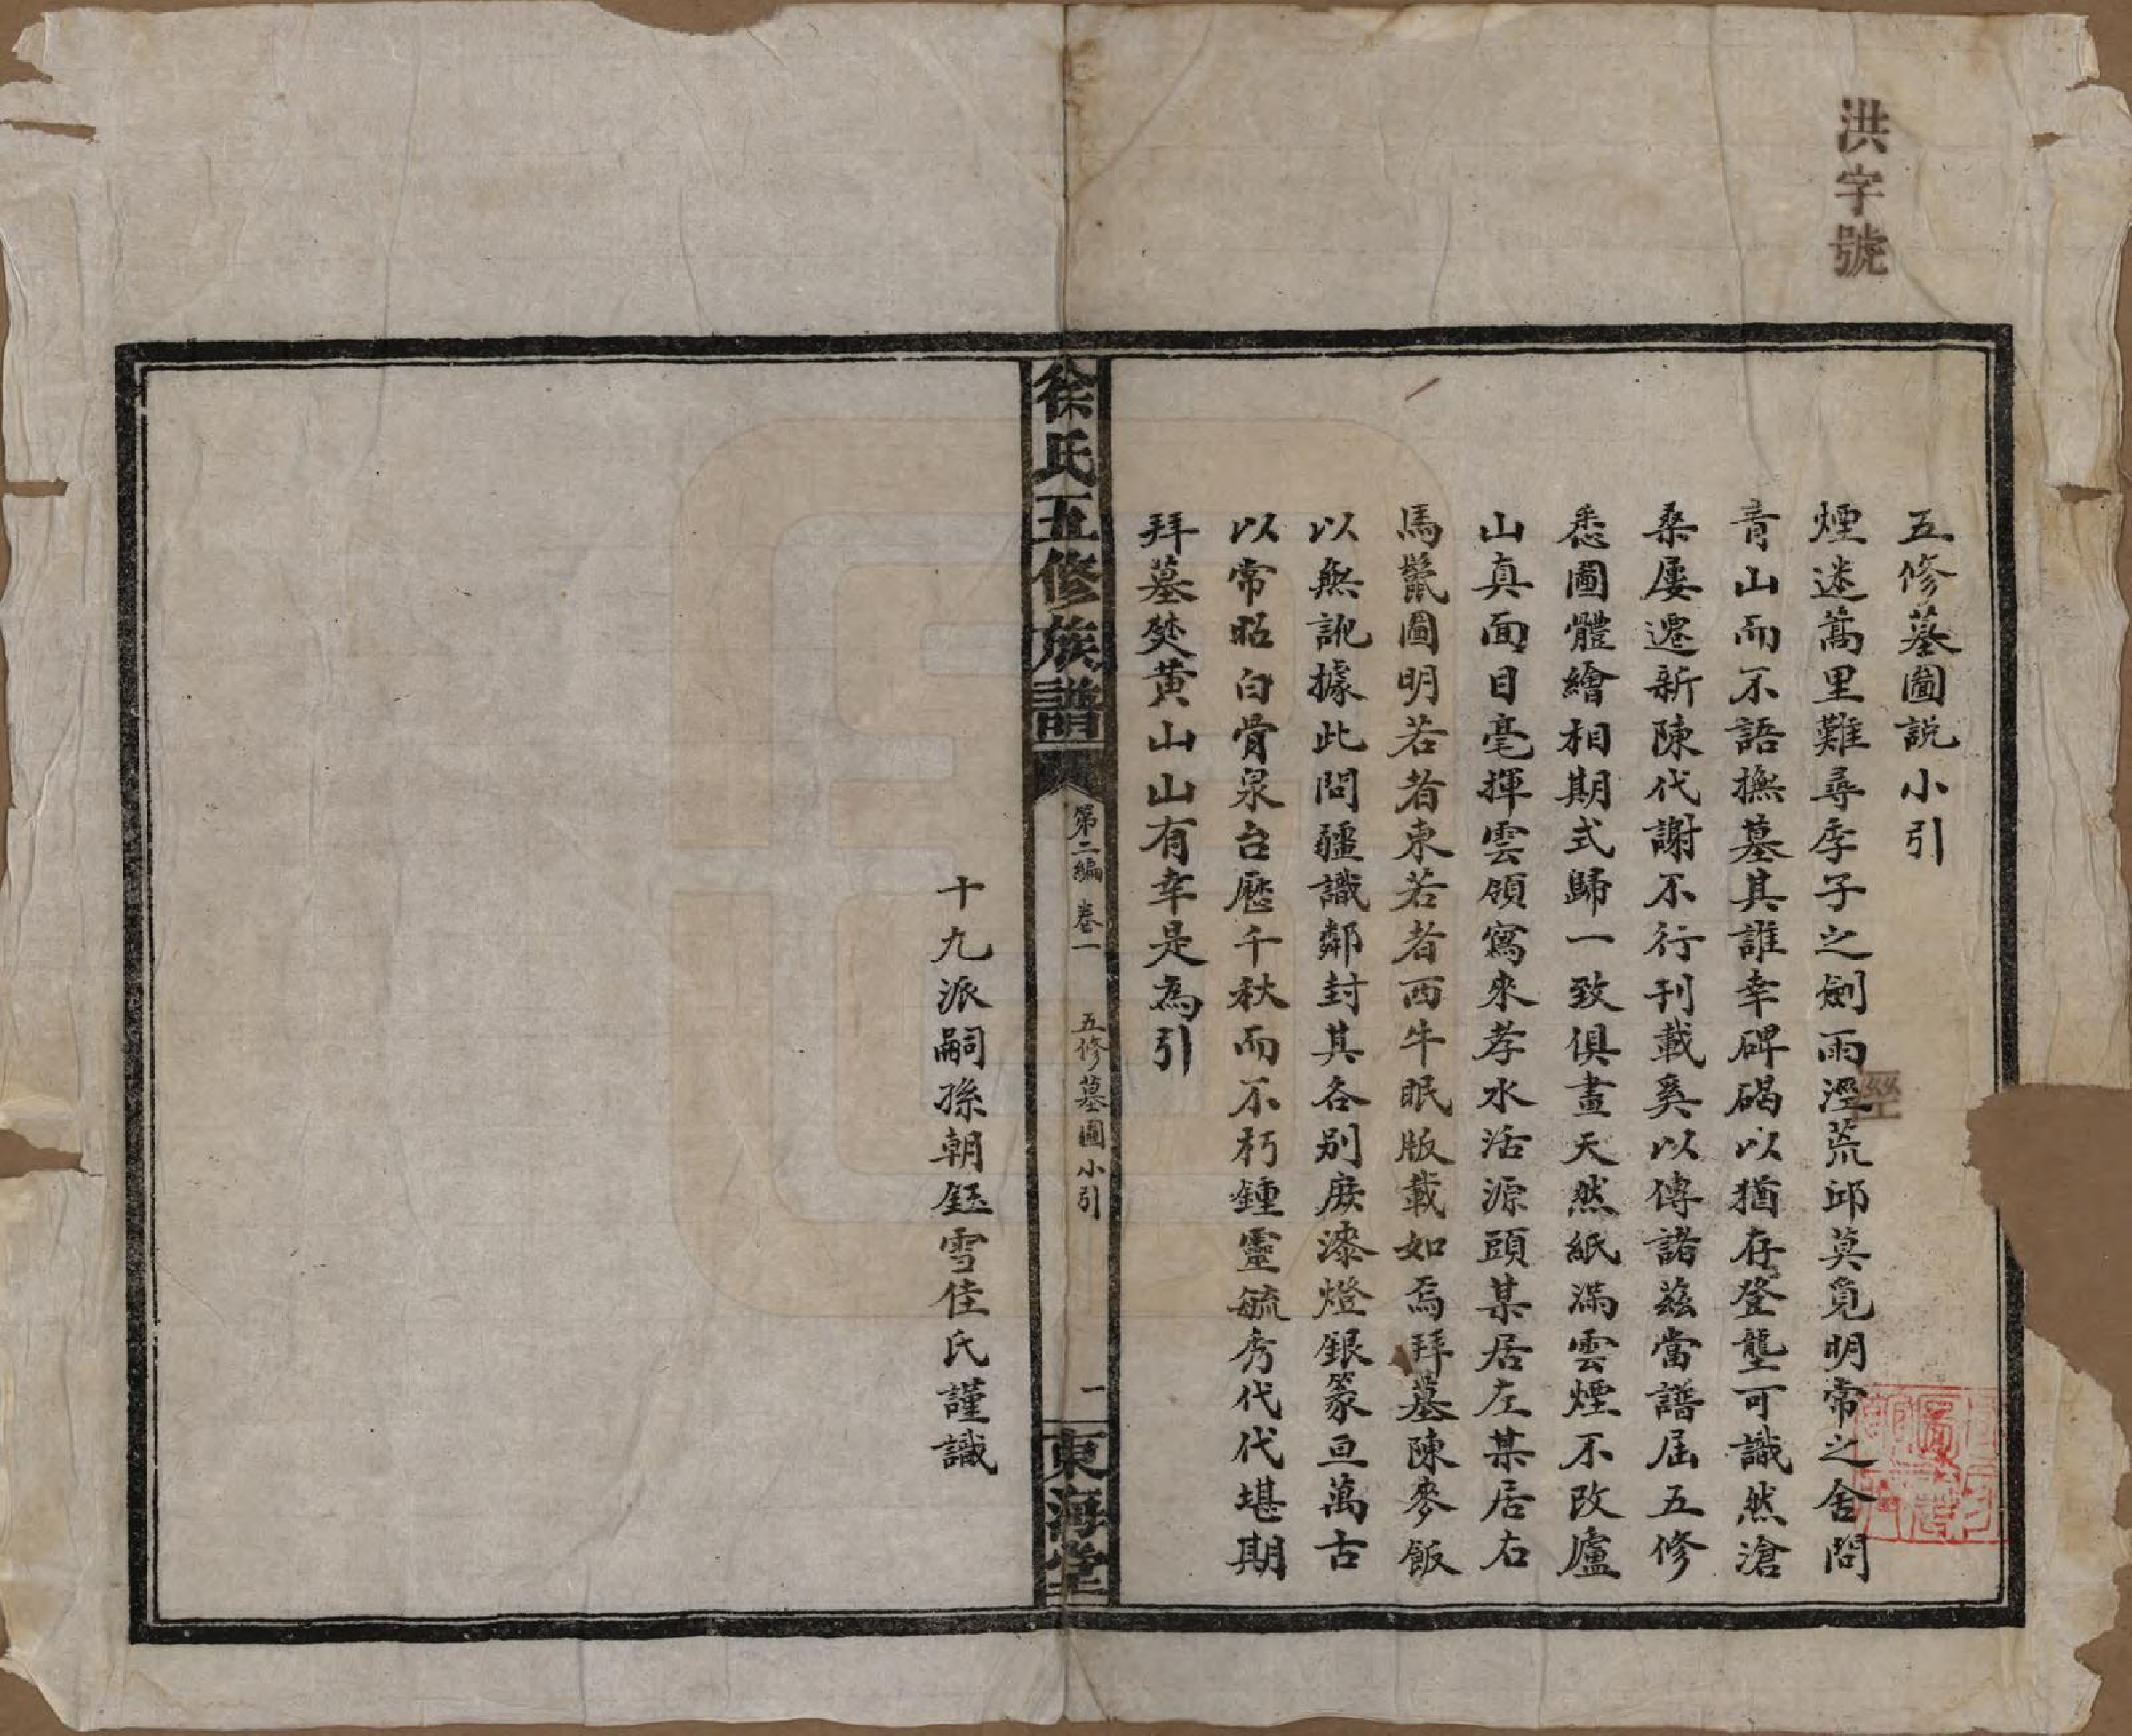 洪字號
五修墓圖説小引
煙迷蒿里難尋季子之劍雨溼荒邱莫覓明常之舍問
青山而不語撫墓其誰幸碑碣以猶存登壟可識然滄
桑屢遷新陳代謝不行刊載奚以傳諸茲當譜屆五修
悉圖體繪相期式歸一致俱畫天然紙滿雲煙不改廬
山真面目毫揮雲領寫來孝水活源頭某居左某居右
馬鬛圖明若者東若者西牛眠版載如焉拜墓陳麥飯
以無訛據此問疆識鄰封其各别庶漆燈銀篆亘萬古
以常昭白骨泉台歷千秋而不朽鍾靈毓秀代代堪期
拜墓焚黄山山有幸是為引
徐氏五修族譜
第二編 卷一 五修墓圖小引 一
東海堂
十九派嗣孫朝鈺雪佳氏謹識